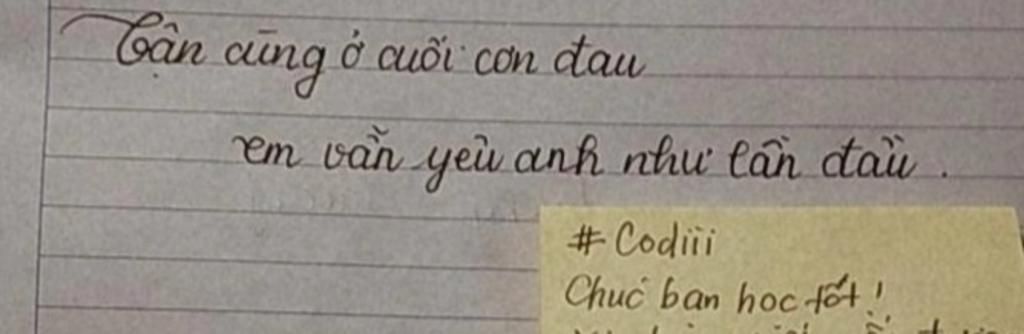 Tận cùng ở cuối cơn đau
em vẫn yêu anh như lần đầu.
#Codiii
Chúc bạn học tốt!